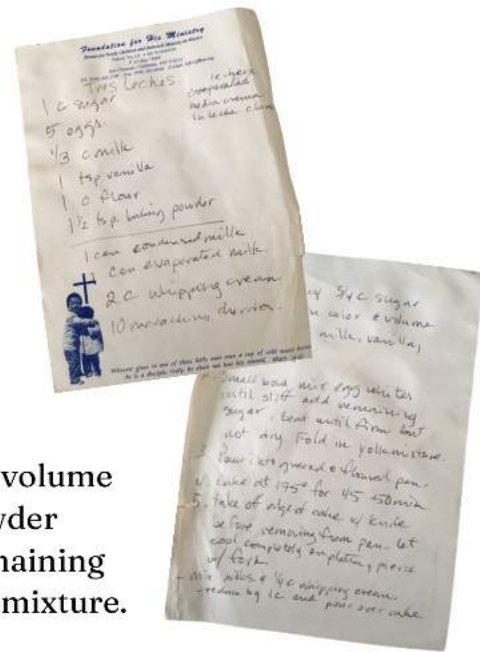 Foundation for His Ministry
Tres Leches
1 c sugar
5 eggs
1/3 c milk
1 tsp vanilla
1 c flour
1 1/2 tsp. baking powder
1 can condensed milk
can evaporated milk
2 C whipping cream
10 maraschino cherries.
media crema
w/ 3/4 c sugar
color & volume
milk, vanilla,
Small bowl mix egg whites
until stiff add remaining
sugar. beat until firm but
not dry. Fold in yolk mixture.
3. Pour into greased & floured pan.
4. bake at 175° for 45 50 min
5. take of edge of cake w/ knife
before removing from pan. let
cool completely on platter, pierce
w/ fork
- mix milks & 1/4 c whipping cream.
- reduce by 1c and pour over cake
volume
wder
maining
mixture.